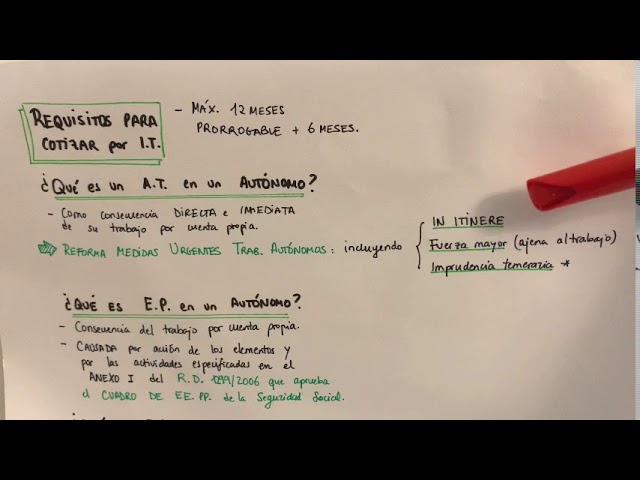 REQUISITOS PARA
COTIZAR por I.T.
- MÁX. 12 MESES
PRORROGABLE + 6 MESES.
¿QUÉ ES UN A.T. EN UN AUTÓNOMO?
- Como consecuencia DIRECTA e INMEDIATA
de su trabajo por cuenta propia.
REFORMA MEDIDAS URGENTES TRAB. AUTÓNOMOS: incluyendo
IN ITINERE
Fuerza mayor (ajena al trabajo)
Imprudencia temeraria *
¿QUÉ ES E.P. EN UN AUTÓNOMO?
- Consecuencia del trabajo por cuenta propia.
- CAUSADA por acción de los elementos y
por las actividades especificadas en el
ANEXO I del R.D. 1299/2006 que aprueba
el CUADRO DE EE.PP. de la Seguridad Social.